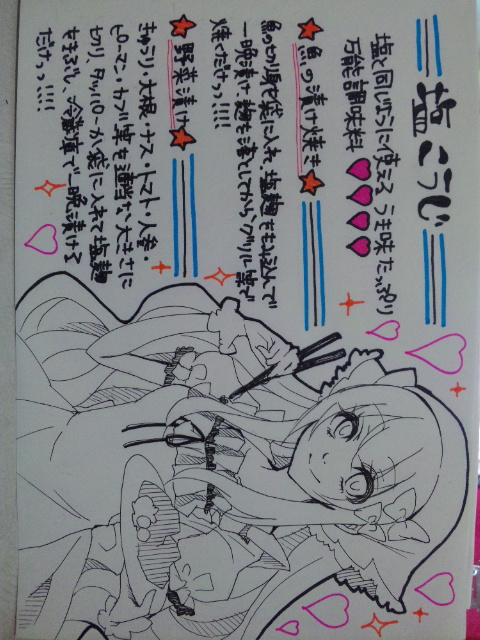 塩こうじ
塩と同じように使える うま味たっぷり
万能調味料
魚の漬け焼き
魚の切り身を袋に入れ、塩麹をもみ込んで
一晩漬け、麹を落としてからグリル等で
焼くだけっ!!!!
野菜漬け
きゅうり・大根・ナス・トマト・人参・
ピーマン・カブ等を適当な大きさに
切り、タッパーか袋に入れて塩麹
をまぶし、冷蔵庫で一晩漬ける
だけっっ!!!!